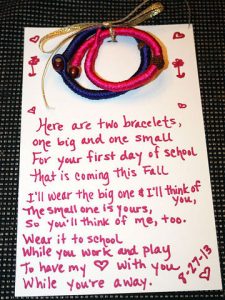 Here are two bracelets,
one big and one small
For your first day of school
that is coming this Fall
I'll wear the big one & I'll think of you,
The small one is yours,
So you'll think of me, too.
Wear it to school
While you work and play
To have my ♡ with you
While you're away.
8-27-13